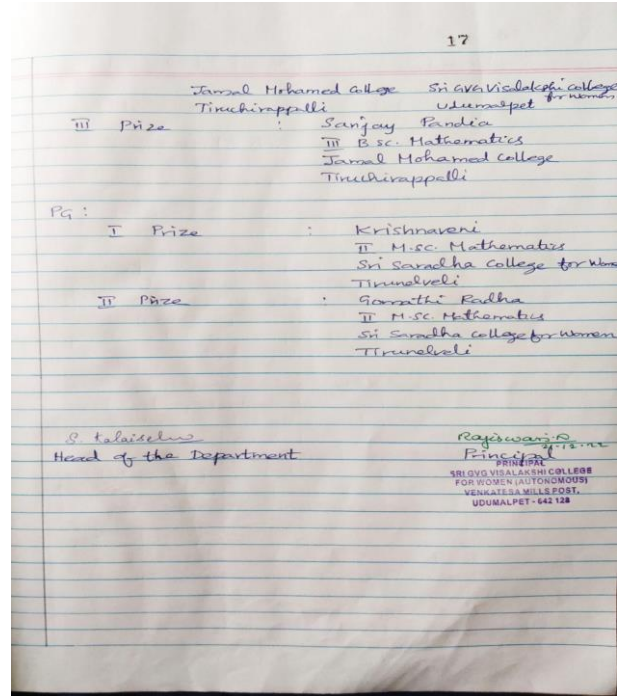 17
Jamal Mohamed College Sri GVG Visalakshi college for Women
Tiruchirappalli Udumalpet
III Prize : Sanjay Pandia
III B.Sc. Mathematics
Jamal Mohamed College
Tiruchirappalli
PG :
I Prize : Krishnaveni
II M.Sc. Mathematics
Sri Saradha College for Women
Tirunelveli
II Prize : Gomathi Radha
II M.Sc. Mathematics
Sri Saradha College for Women
Tirunelveli
S. Kalaiselvi Rajeswari.P
Head of the Department Principal
PRINCIPAL
SRI GVG VISALAKSHI COLLEGE
FOR WOMEN (AUTONOMOUS)
VENKATESA MILLS POST,
UDUMALPET - 642 128